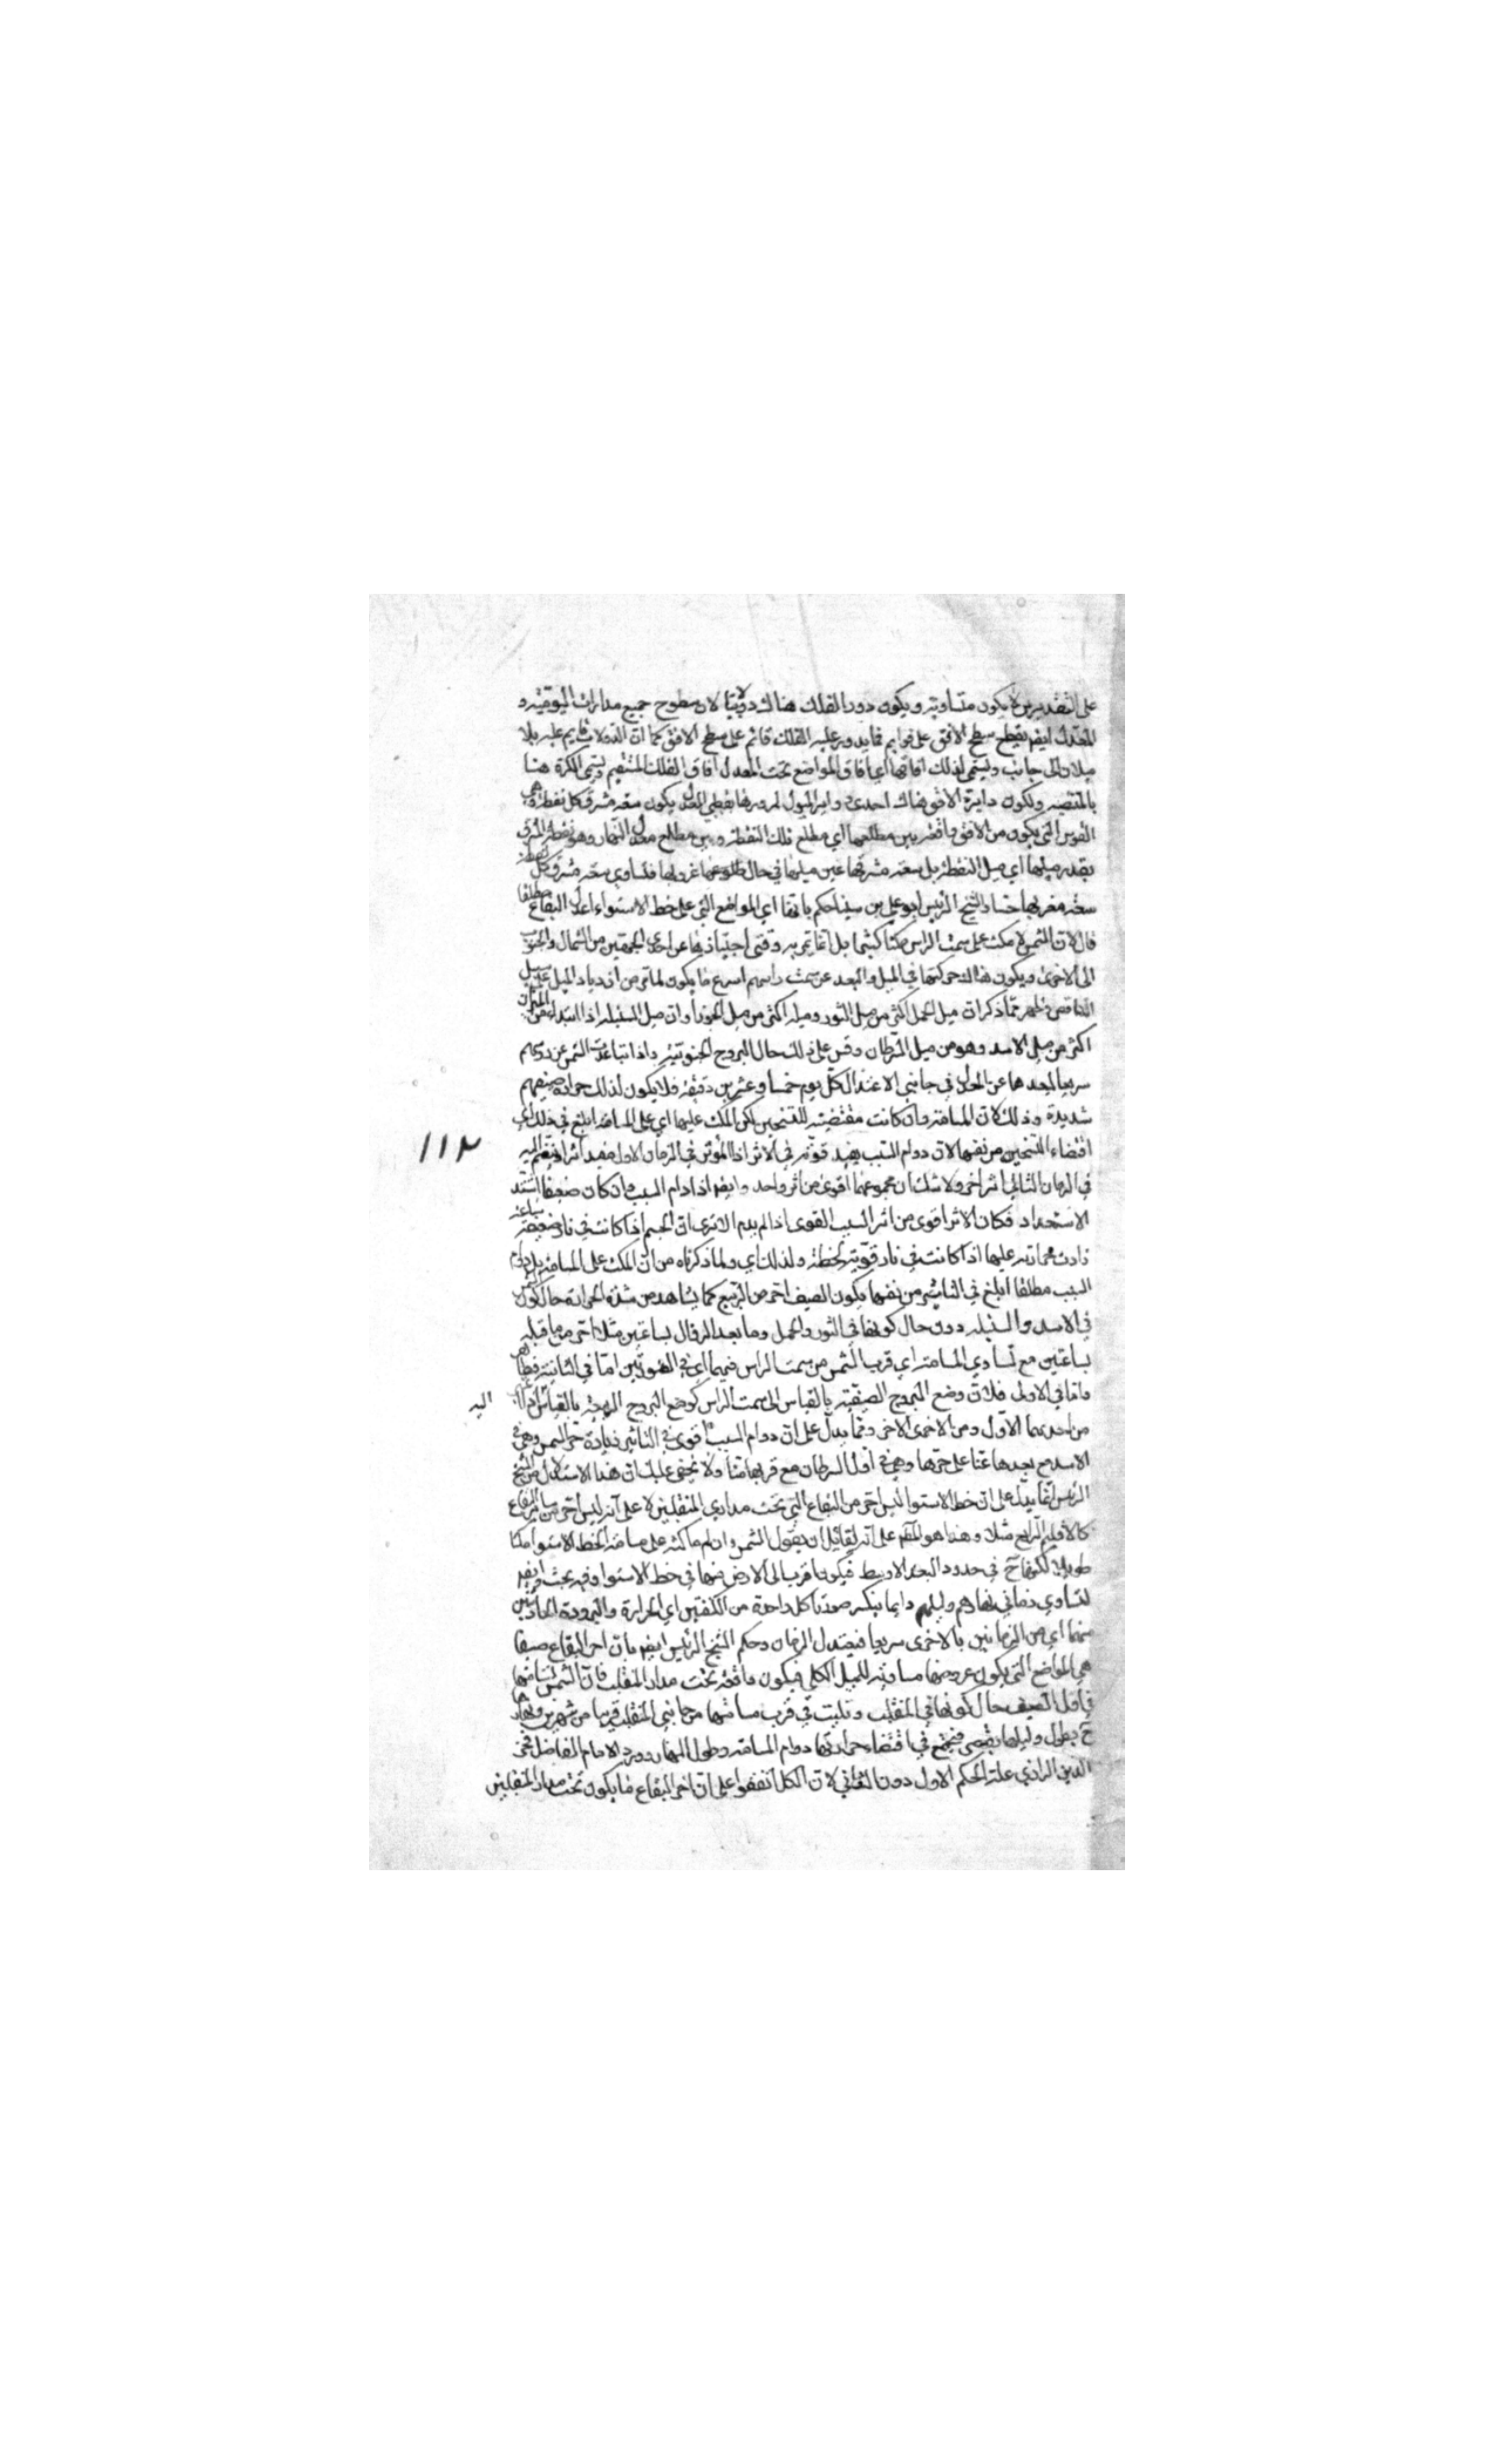 على التقديرين لا يكون متساوية ويكون دور الفلك هناك دولابيا لان سطوح جميع مدارات اليومية و
المعدل ايضا يقطع سطح الافق على قوايم فما يدور عليه الفلك قائم على سطح الافق كما ان الدولاب قايم عليه بلا
ميلان الى جانب وليسمى لذلك افاقها اي افاق المواضع تحت المعدل افاق الفلك المستقيم ويسمى الكرة هنا
بالمنتصبة وتكون دايرة الافق هناك احدى دواير الميول لمرورها بقطبي المعدل يكون سعة مشرق كل نقطة وهي
القوس التي يكون من الافق واقعة بين مطلعها اي مطلع تلك النقطة وبين مطلع معدل النهار وهو نقطة المشرق
بقدر ميلها اي ميل النقطة بل سعة مشرقها عين ميلها في حال طلوعها غروبها فتساوي سعة مشرق كل نقطة
سعة مغربها حساد الشيخ الرئيس ابو علي بن سينا حكم بانها اي المواضع التي على خط الاستواء اعدل البقاع مطلقا
قال لان الشمس لا مكث على سمت الراس مكثا كثيرا بل انما تمر به وقتي اجتيازها عن احدى الجهتين من الشمال والجنوب
الى الاخرى ويكون هناك حركتها في الميل والبعد عن سمت راسهم اسرع ما يكون لما مر من ازدياد الميل على سبيل
التناقص وظهر مما ذكر ان ميل الحمل اكثر من ميل الثور وميله اكثر من ميل الجوزا وان ميل السنبلة اذا ابتدا من الميزان
اكثر من ميل الاسد وهو من ميل السرطان وقس على ذلك حال البروج الجنوبية واذا تباعدت الشمس عن روسهم
سريعا لبعدها عن المعدل في جانبي الاعتدال كل يوم خمسا وعشرين دقيقة فلا يكون لذلك حرارة صيفهم
شديدة وذلك لان المسامتة وان كانت مقتضية للتسخين لكن المكث عليها اي على المسامتة ابلغ في ذلك اي
اقتضاء التسخين من نفسها لان دوام السبب يفيد قوة في الاثر اذ الموثر في الزمان الاول مفيد اثرا وينضم اليه
في الزمان الثاني اثر اخر ولا شك ان مجموعهما اقوى من اثر واحد وايضا اذا دام السبب وان كان ضعيفا اشتد
الاستعداد فكان الاثر اقوى من اثر السبب القوى اذا لم يدم الا ترى ان الجسم اذا كانت في نار ضعيفة ساعة
زادت حمارته عليها اذا كانت في نار قوية لحظة ولذلك اي ولما ذكرناه من ان المكث على المسامتة بل دوام
السبب مطلقا ابلغ في التاثير من نفسها يكون الصيف احر من الربيع كما يشاهد من شدة الحرارة حال كون الشمس
في الاسد والسنبلة دون حال كونها في الثور والحمل وما بعد الزوال بساعتين مثلا احر مما قبله
بساعتين مع تساوي المسامتة اي قرب الشمس من سمت الراس فيهما اي في الصورتين اما في الثانية فظاهر
واما في الاولى فلان وضع البروج الصيفية بالقياس الى سمت الراس كوضع البروج الربيعية بالقياس اليه
من احديهما الاول ومن الاخرى الاخر ومما يدل على ان دوام السبب اقوى في التاثير زيادة حر الشمس وهي في
الاسد مع بعدها عنا على حرها وهي في اول السرطان مع قربها منا ولا يخفى عليك ان هذا الاستدلال من الشيخ
الرئيس انما يدل على ان خط الاستوا ليس احر من البقاع التي تحت مداري المنقلبين لا على انه ليس احر من ساير البقاع
كالاقليم الرابع مثلا وهذا هو المهم على انه لقائل ان يقول الشمس وان لم ماكثة على مسامتة لخط الاستوا مكثا
طويلا لكونها ح في حدود البعد الاوسط فيكون اقرب الى الارض منها في خط الاستوا وفيه بحث وايضا
لتساوي زماني نهارهم وليلهم دايما ينكسر صورتا كل واحدة من الكيفيتين اي الحرارة والبرودة الحادثتين
منهما اي من الزمانين بالاخرى سريعا فيعتدل الزمان وحكم الشيخ الرئيس ايضا بان احر البقاع صيفا
هي المواضع التي يكون عروضها مساوية للميل الكلي فيكون واقعة تحت مدار المنقلب فان الشمس تسامتها
في اول الصيف حال كونها في المنقلب وتلبث في قرب مسامتتها من جانبي المنقلب قريبا من شهرين ونهارها
ح يطول وليلها يقصر فيجتمع في اقتضاء حرارتها دوام المسامتة وطول النهار ورد الامام الفاضل فخر
الدين الرازي علته الحكم الاول دون الثاني لان الكل اتفقوا على ان احر البقاع ما يكون تحت مدار المنقلبين
١١٢
اليه